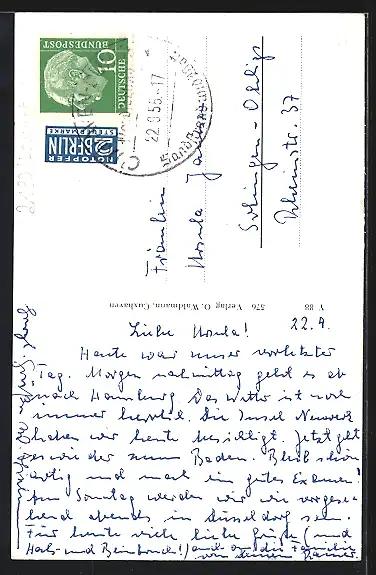 DEUTSCHE
BUNDESPOST
10
NOTOPFER
2 BERLIN
STEUERMARKE
22.8.55.-17
Fräulein
Ursula
Solingen-Ohligs
Rheinstr. 37
V 88 576 Verlag O. Waldmann, Cuxhaven
22.
Liebe Ursula!
Heute war unser vorletzter
Tag. Morgen nachmittag geht es ab
nach Hamburg Das Wetter ist noch
immer herrlich. Die Insel Neuwerk
haben wir heute besichtigt. Jetzt geht
es wieder zum Baden. Bleib schön
artig und mach ein gutes Examen!
Am Sonntag werden wir wie vorgese-
hend abends in Düsseldorf sein.
Für heute viele liebe Grüße (und
Hals- und Beinbruch!) auch an die Familie
von Deinem Rainer